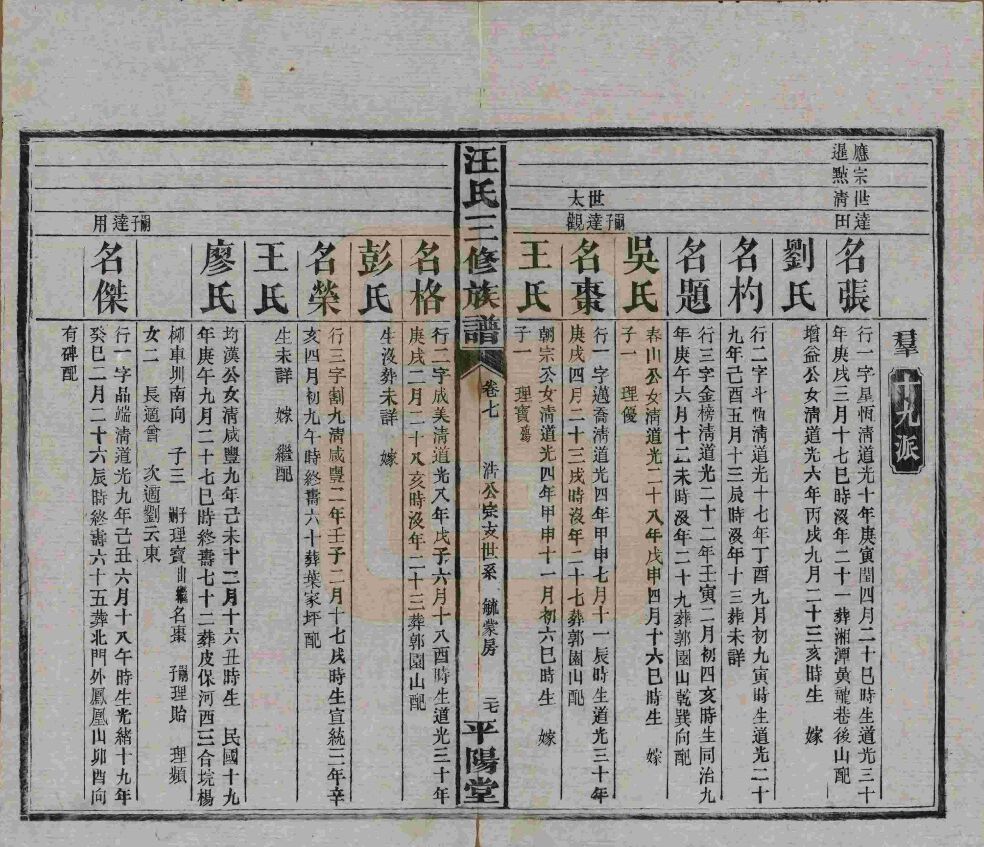 羣
十九派
應宗世達
暹點淸田
名張
行一字星恆淸道光十年庚寅閏四月二十巳時生道光三十
年庚戌三月十七巳時沒年二十一葬湘潭黃龍巷後山配
劉氏
增益公女淸道光六年丙戌九月二十三亥時生　嫁
名杓
行二字斗恆淸道光十七年丁酉九月初九寅時生道光二十
九年己酉五月十三辰時沒年十三葬未詳
名題
行三字金榜淸道光二十二年壬寅二月初四亥時生同治九
年庚午六月十二未時沒年二十九葬郭園山乾巽向配
吳氏
春山公女淸道光二十八年戊申四月十六巳時生　嫁
子一　理優
世達嗣子
太觀
名棗
行一字邁喬淸道光四年甲申七月十一辰時生道光三十年
庚戌四月二十三戌時沒年二十七葬郭園山配
王氏
朝宗公女淸道光四年甲申十一月初六巳時生　嫁
子一　理寶殤
汪氏三修族譜
卷七
浩公宗支世系　毓蒙房
二七
平陽堂
名格
行二字成美淸道光八年戊子六月十八酉時生道光三十年
庚戌二月二十八亥時沒年二十三葬郭園山配
彭氏
生沒葬未詳　嫁
名榮
行三字割九淸咸豐二年壬子二月十七戌時生宣統三年辛
亥四月初九午時終壽六十葬葉家坪配
王氏
生未詳　嫁　繼配
廖氏
均漢公女淸咸豐九年己未十二月十六丑時生　民國十九
年庚午九月二十七巳時終壽七十二葬皮保河西三合垸楊
柳車圳南向　子三　理寶出繼名棗嗣子　理貽　理頻
女二　長適曾　次適劉云東
達嗣子
用
名傑
行一字品端淸道光九年己丑六月十八午時生光緒十九年
癸巳二月二十六辰時終壽六十五葬北門外鳳凰山卯酉向
有碑配